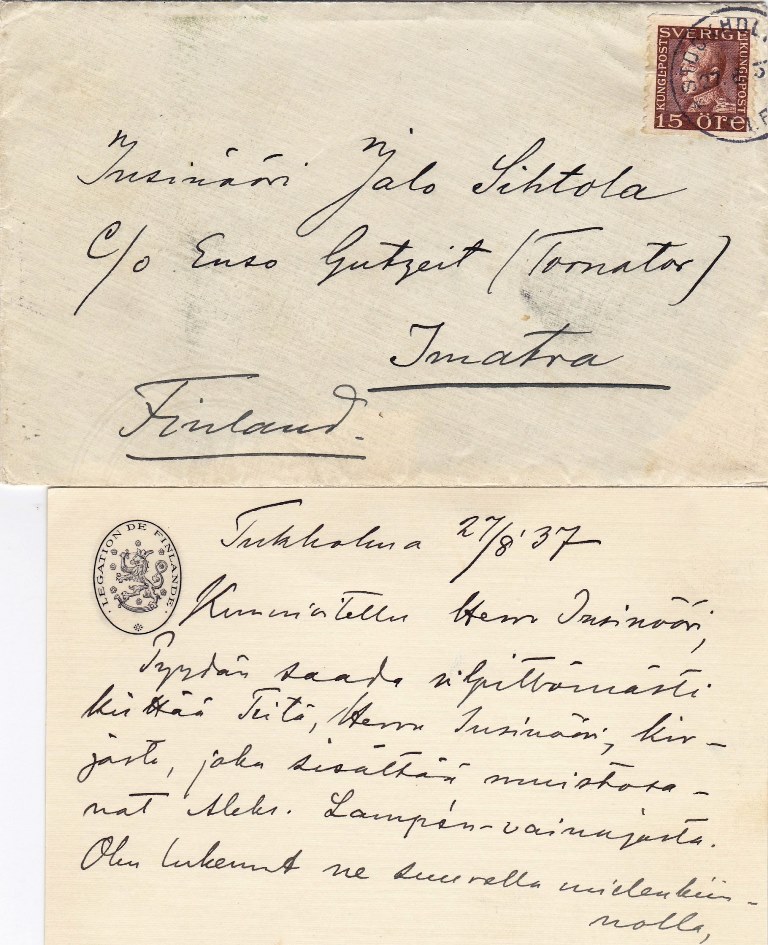 SVERIGE
KUNGL·POST
KUNGL·POST
15 öre
Insinööri Jalo Sihtola
C/o Enso Gutzeit (Tornator)
Imatra
Finland.
LEGATION DE FINLANDE
Tukholma 27/8'37
Kunnioitettu Herra Insinööri,
Pyydän saada vilpittömästi
kiittää Teitä, Herra Insinööri, kir-
jasta, joka sisältää muistosa-
nat Aleks. Lampén-vainajasta.
Olen lukenut ne suurella mielenkiin-
nolla,